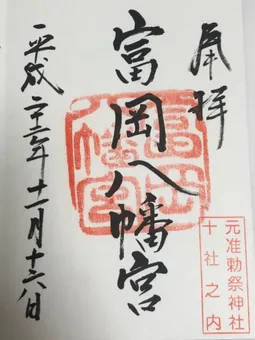 奉拝
元准勅祭神社
十社之内
富岡八幡宮
平成二十六年十一月十六日